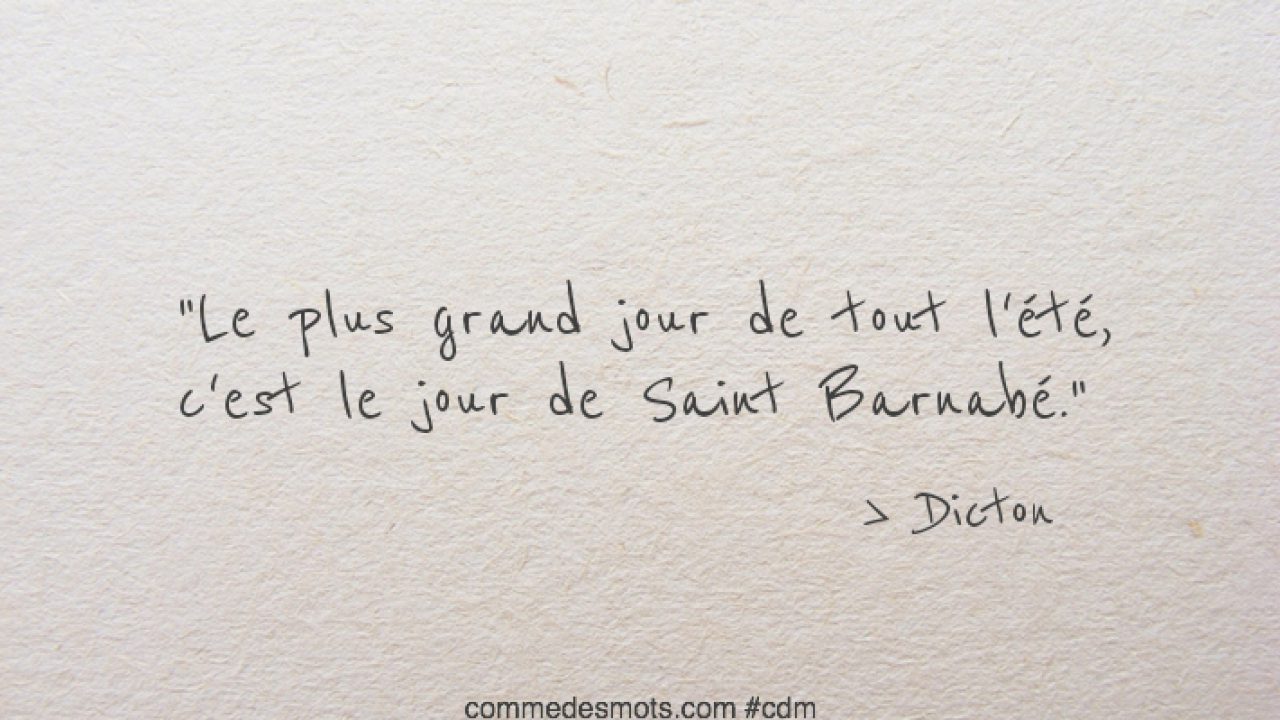 "Le plus grand jour de tout l'été,
c'est le jour de Saint Barnabé."
> Dicton
commedesmots.com #cdm